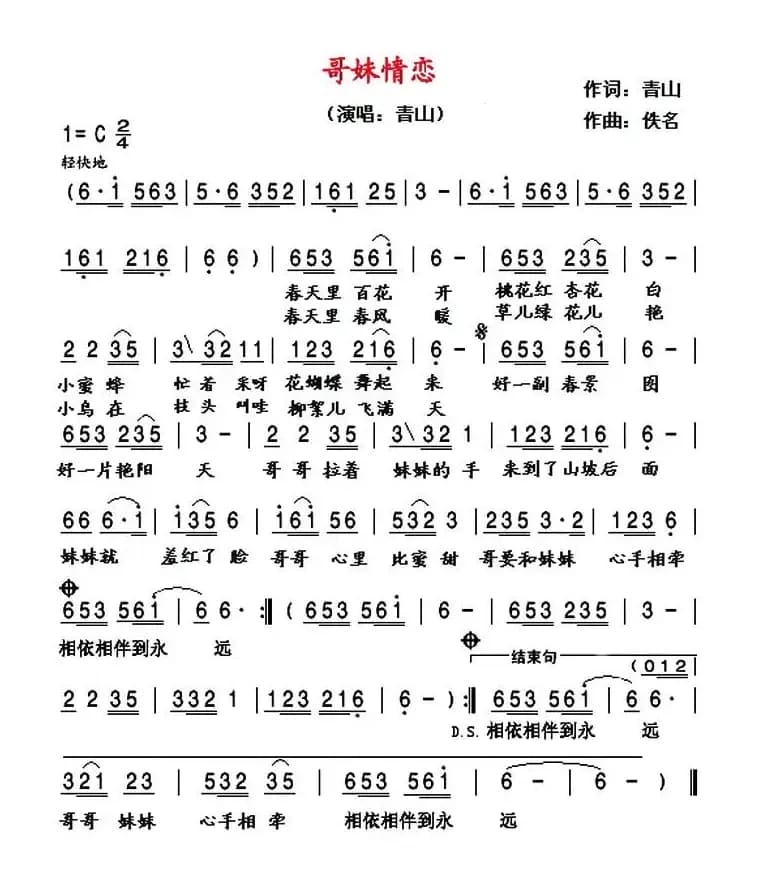 哥妹情恋
（演唱：青山）
作词：青山
作曲：佚名
1=C 2/4
轻快地
(6·i 563|5·6 352|161 25|3 -|6·i 563|5·6 352|
161 216|6 6)|653 561|6 -|653 235|3 -|
春天里 百花 开 桃花红 杏花 白
春天里 春风 暖 草儿绿 花儿 艳
2 2 35|3\ 32 11|123 216|6 -|653 561|6 -|
小蜜 蜂 忙着 采呀 花蝴蝶 舞起 来 好一副 春景 图
小鸟 在 枝头 叫哇 柳絮儿 飞满 天
653 235|3 -|2 2 35|3\ 32 1|123 216|6 -|
好一片艳阳 天 哥 哥 拉着 妹妹的 手 来到了山坡后 面
66 6·i|i35 6|i6i 56|532 3|235 3·2|123 6|
妹妹就 羞红了 脸 哥哥 心里 比蜜 甜 哥要和妹妹 心手相牵
653 561|6 6·:‖(653 561|6 -|653 235|3 -|
相依相伴到永 远
结束句
(012
2 2 35|332 1|123 216|6 -):‖653 561|6 6·|
D.S. 相依相伴到永 远
321 23|532 35|653 561|6 -|6 -)‖
哥哥 妹妹 心手相 牵 相依相伴到永 远